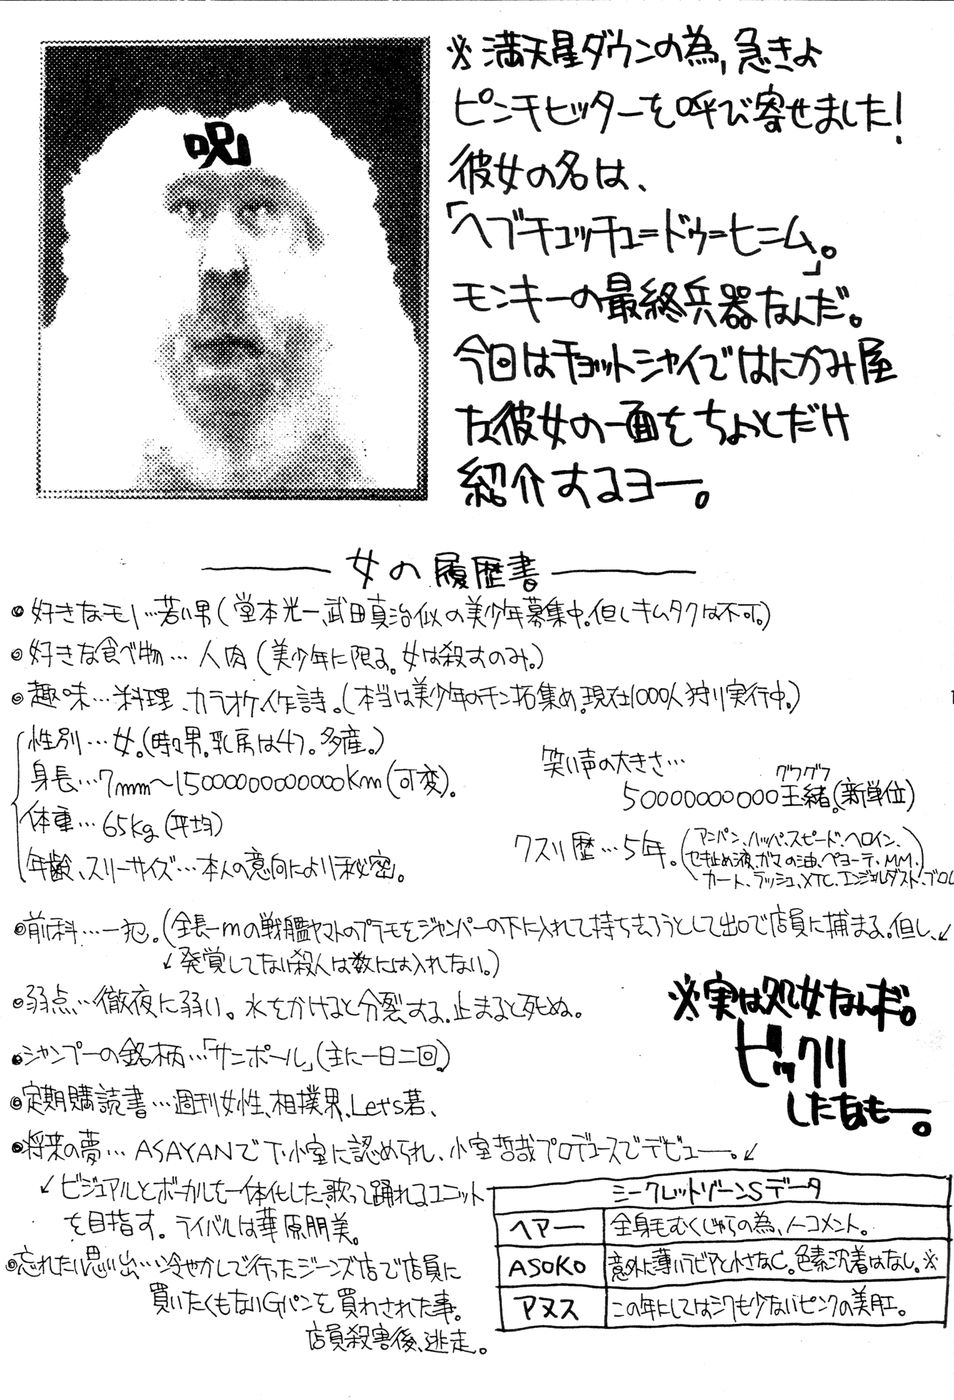 呪
※満天星ダウンの為、急きょ
ピンチヒッターを呼び寄せました!
彼女の名は、
「ヘブチュッチュ=ドゥ=ヒニム」。
モンキーの最終兵器なんだ。
今回はチョットシャイではにかみ屋
な彼女の一面をちょっとだけ
紹介するヨー。
女の履歴書
●好きなモノ…若い男(堂本光一、武田真治似の美少年募集中。但しキムタクは不可。)
●好きな食べ物…人肉(美少年に限る。女は殺すのみ。)
●趣味…料理、カラオケ、作詩。(本当は美少年のチン拓集め。現在1000人狩り実行中。)
性別…女。(時々男。乳房は47。多産。)
身長…7mm〜15000000000000Km(可変)。
体重…65kg(平均)
年齢、スリーサイズ…本人の意向により秘密。
笑い声の大きさ…
グウグウ
50000000000王緒。(新単位)
クスリ歴…5年。(アンパン、ハッパ、スピード、ヘロイン、
セキ止め液、ガマの油、ペヨーテ、MM、
カート、ラッシュ、XTC、エンジェルダスト、ブロ
●前科…一犯。(全長一mの戦艦ヤマトのプラモをジャンパーの下に入れて持ち去ろうとして出口で店員に捕まる。但し、↙
↙発覚してない殺人は数には入れない。)
●弱点…徹夜に弱い。水をかけると分裂する。止まると死ぬ。
●シャンプーの銘柄…「サンポール」(主に一日二回)
●定期購読書…週刊女性、相撲界、Let's若、
●将来の夢…ASAYANで下小室に認められ、小室哲哉プロデュースでデビュー。↙
↙ビジュアルとボーカルを一体化した、歌って踊れるユニット
を目指す。ライバルは華原朋美。
●忘れたい思い出…冷やかしで行ったジーンズ店で店員に
買いたくもないGパンを買わされた事。
店員殺害後、逃走。
※実は処女なんだ。
ビックリ
したなもー。
シークレットゾーンSデータ
ヘアー 全身毛むくじゃらの為、ノーコメント。
ASOKO 意外に薄いラビアと小さなC。色素沈着はなし。※
アヌス この年にしてはシワも少ないピンクの美肛。